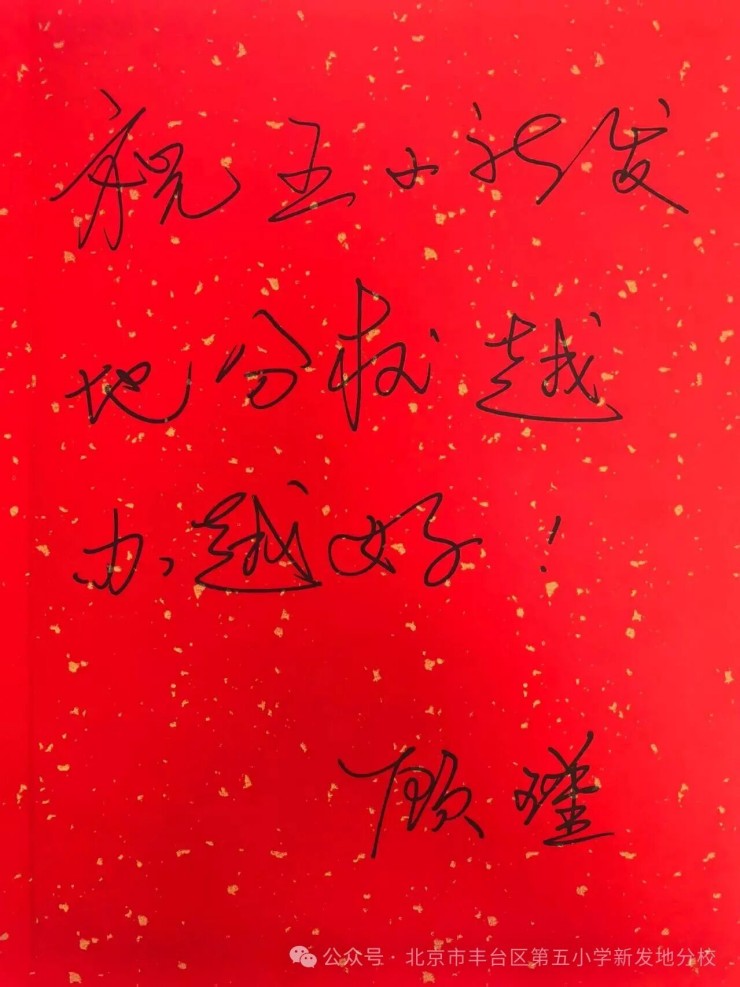 祝五小新发
地分校越
办越好!
顾瑾
公众号·北京市丰台区第五小学新发地分校